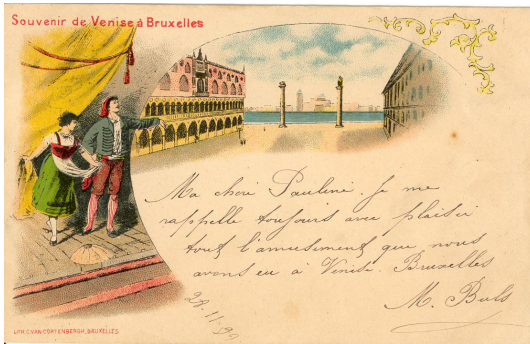 Souvenir de Venise à Bruxelles
Ma chère Pauline. Je me
rappelle toujours avec plaisir
tout l'amusement que nous
avons eu à Venise. Bruxelles
M. Buls
29.11
LITH. C. VAN CORTENBERGH, BRUXELLES